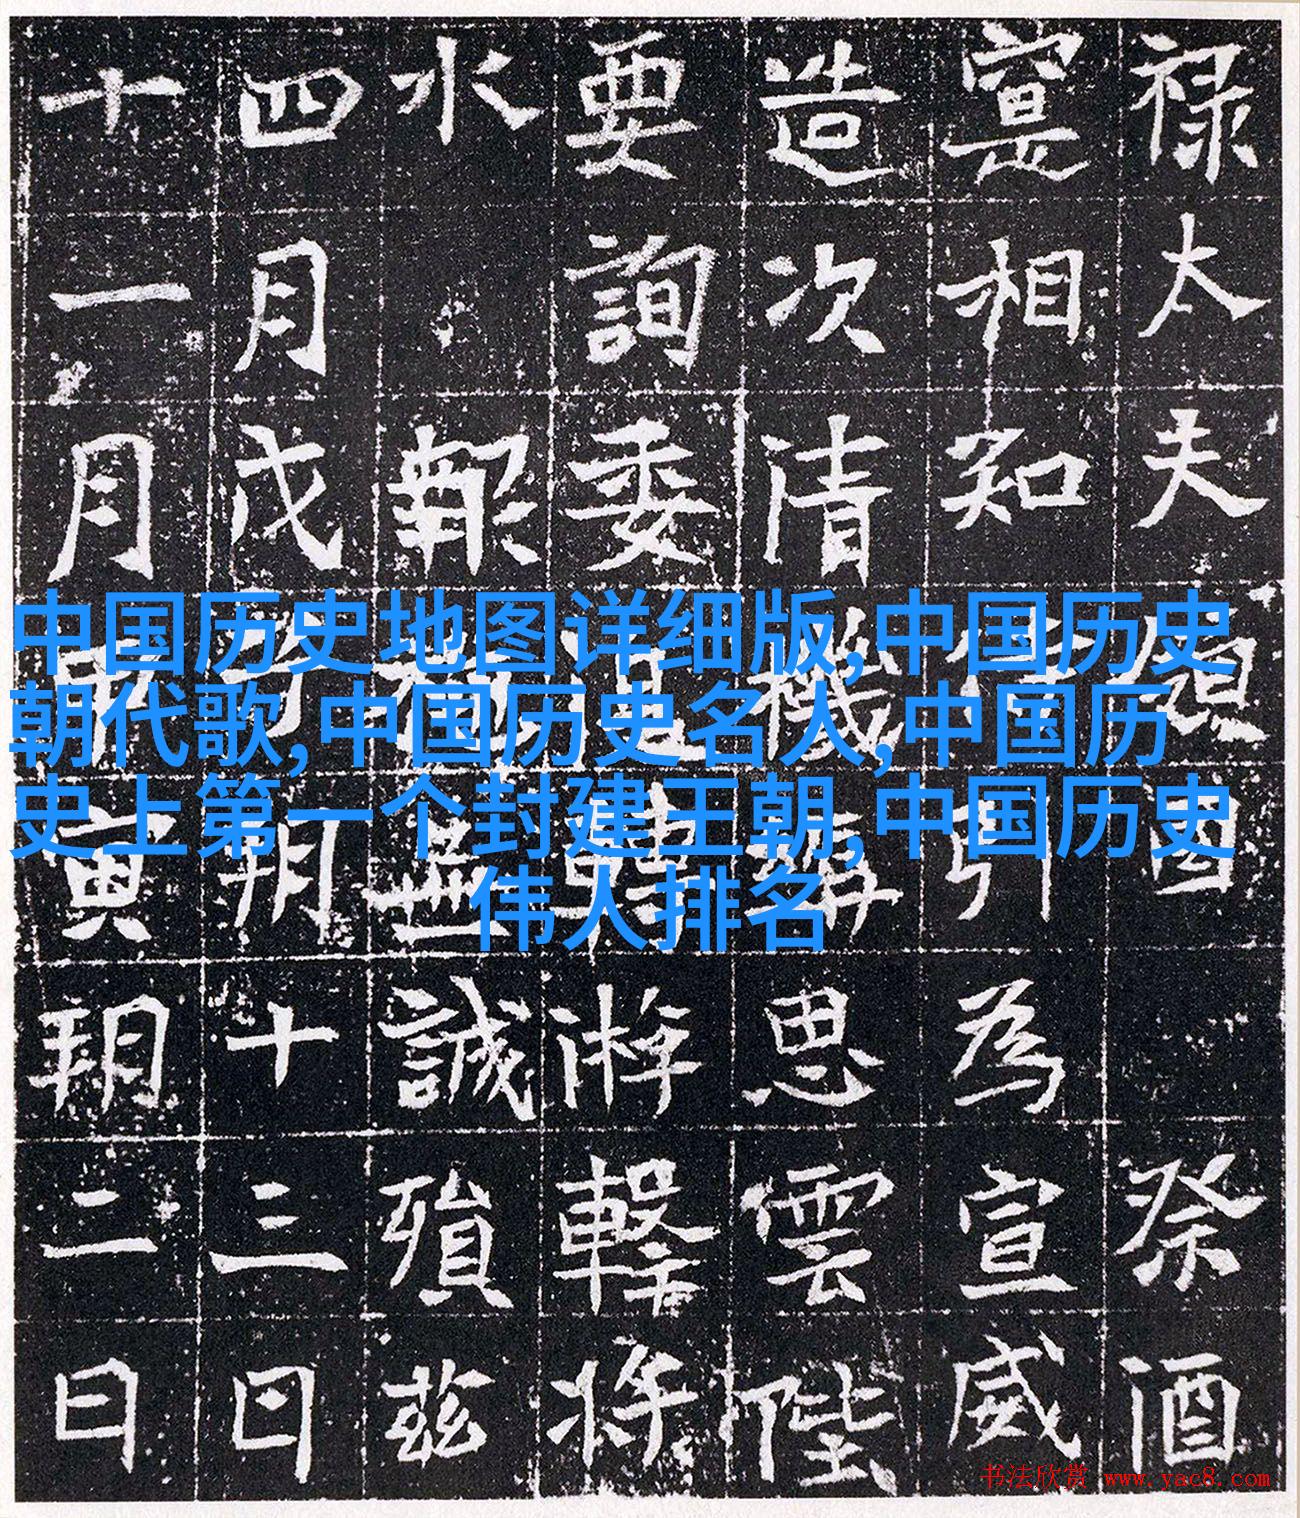 禄太夫因祭酒
寔相知引為宣威
造次清機思雲陛
要詢委游擊將
水報誠殞茲
四月戊朔十三日
十一月寅朔二日
中国历史地图详细版,中国历史
朝代歌,中国历史名人,中国历
史上第一个封建王朝,中国历史
伟人排名
书法欣赏 www.yac8.com